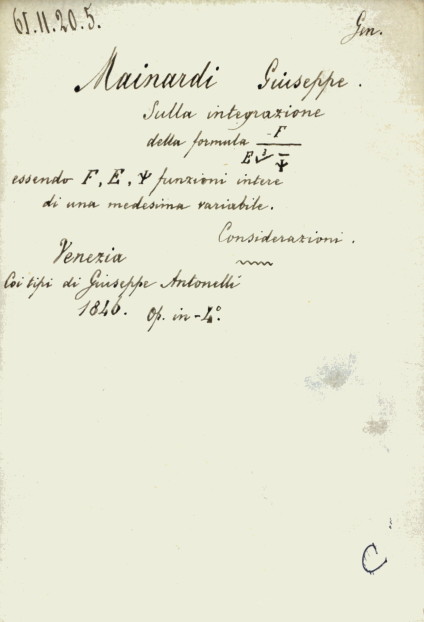 61.11.20.5.
Gen.
Mainardi Giuseppe.
Sulla integrazione
della formula F / E ∛Ψ
essendo F, E, Ψ funzioni intere
di una medesima variabile.
Considerazioni.
Venezia
Coi tipi di Giuseppe Antonelli
1846. Op. in-4°.
C